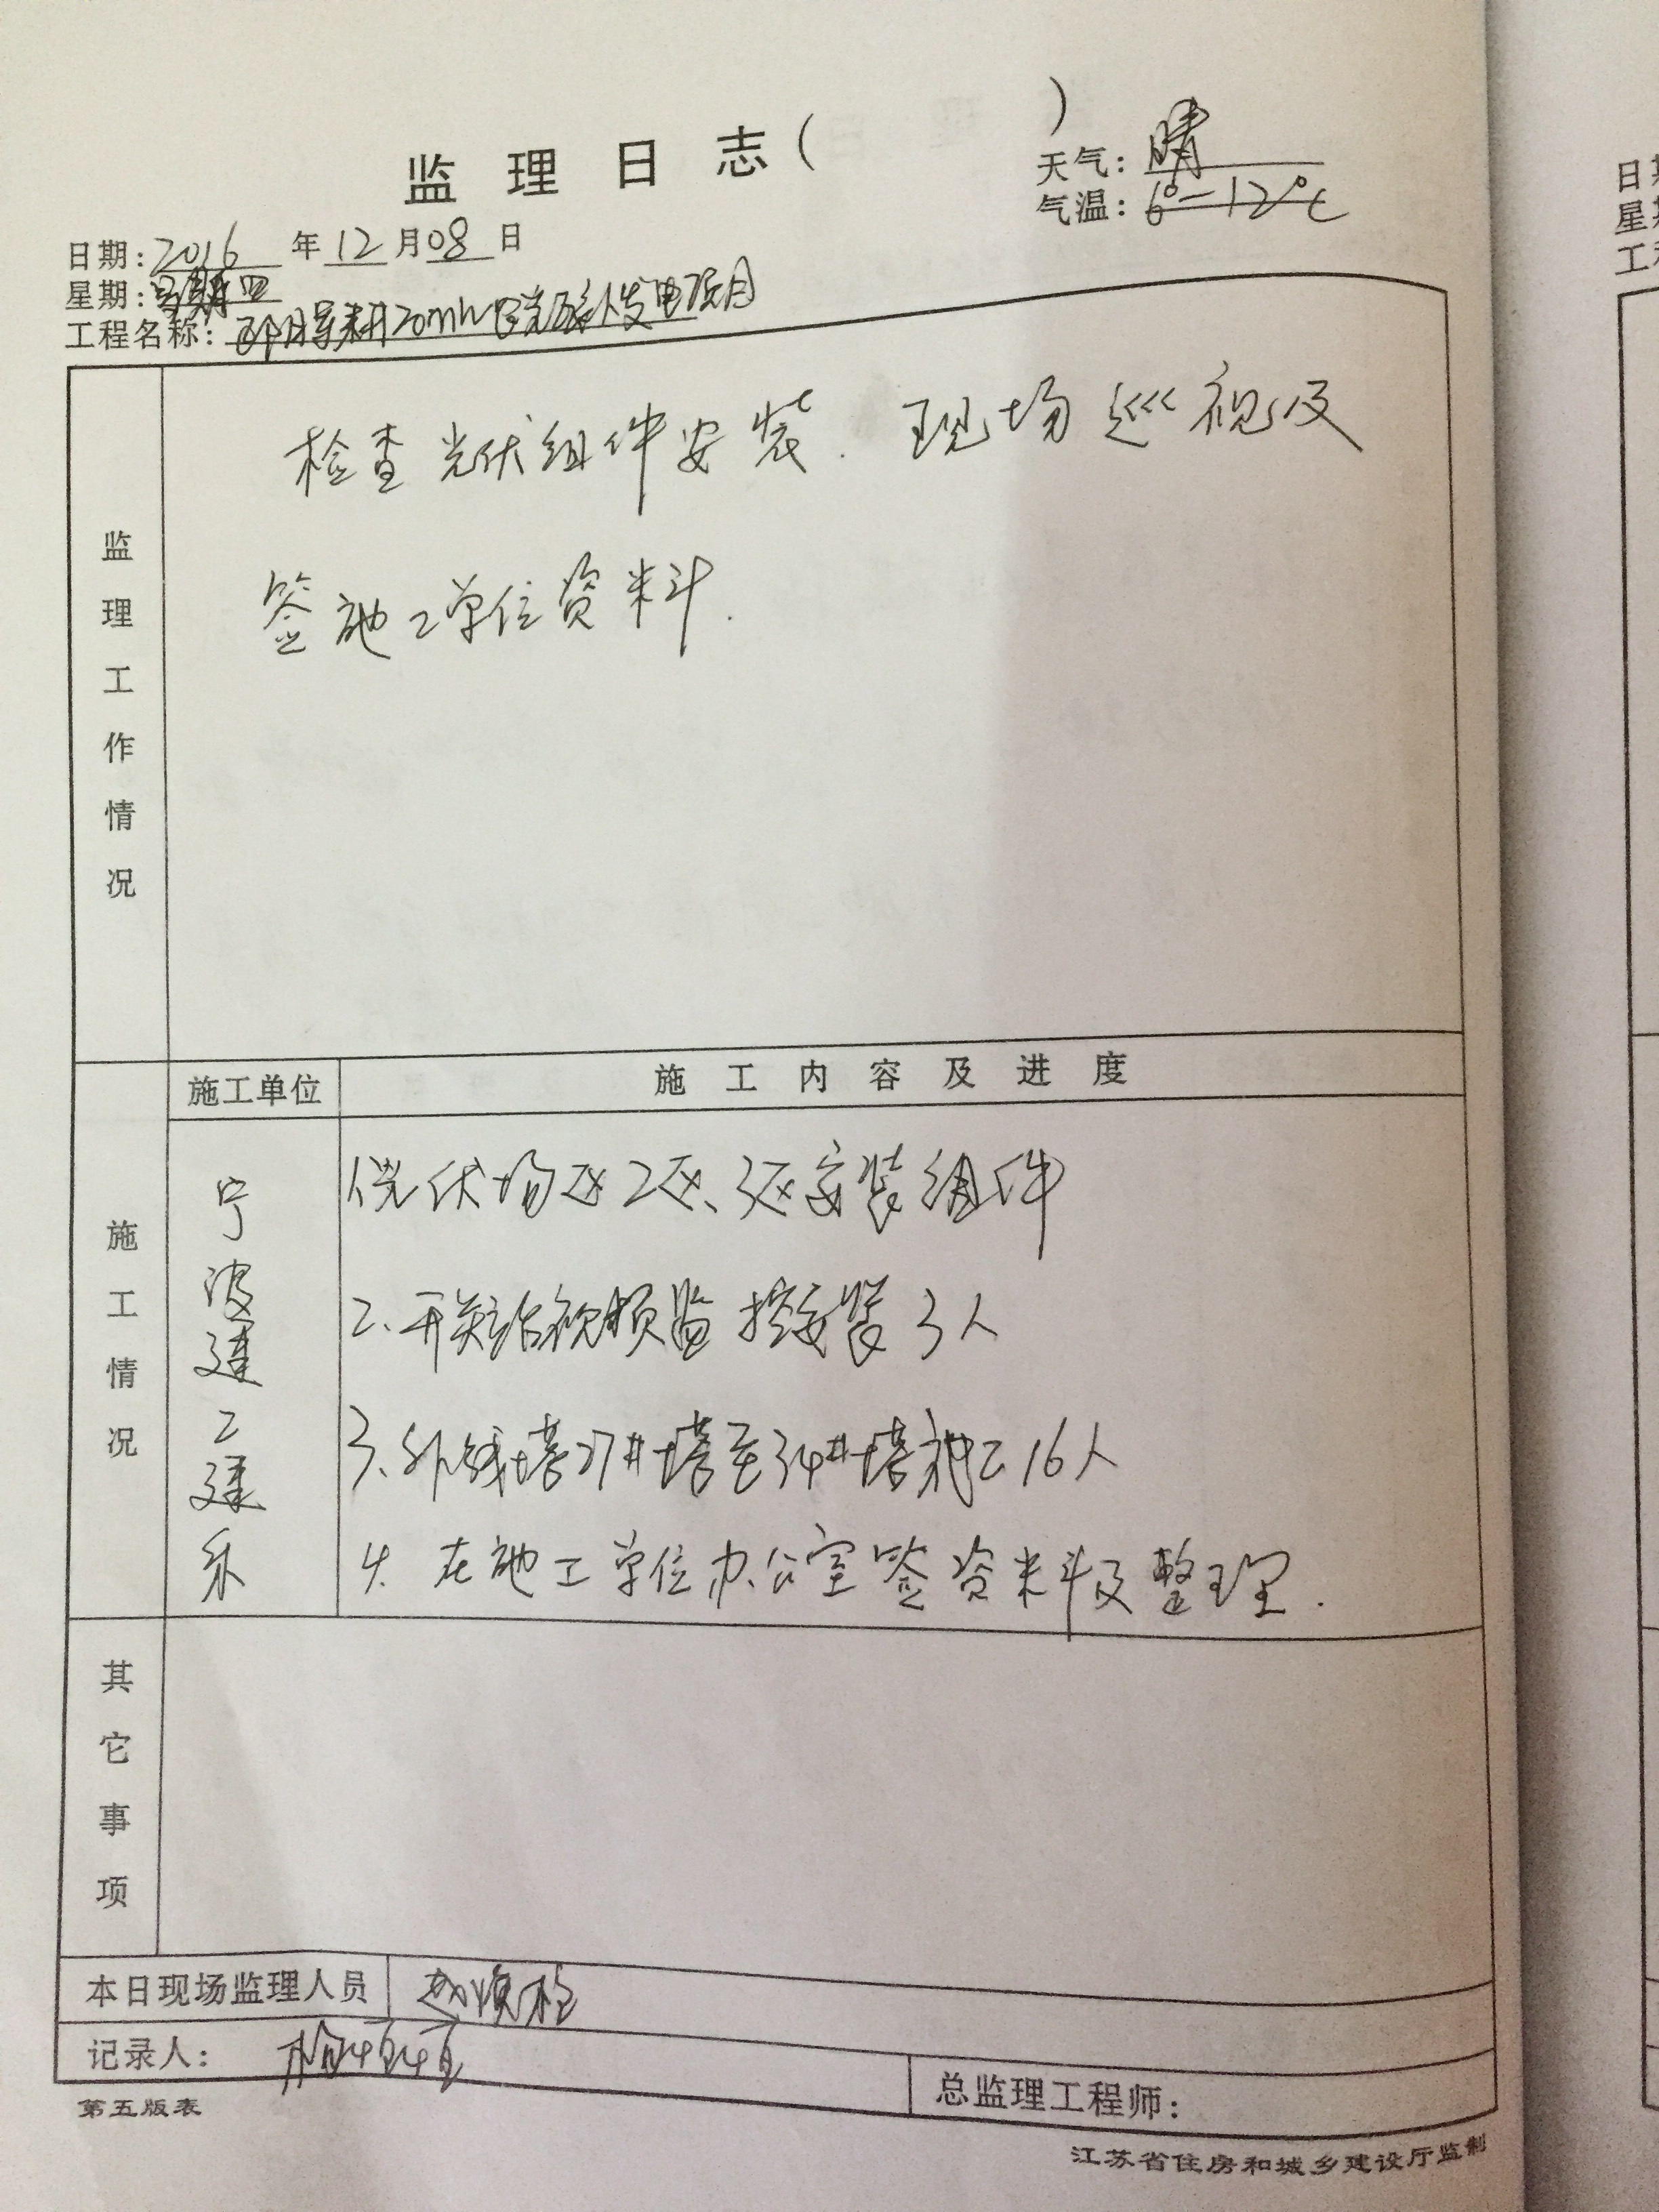 监理日志（ ）
天气：晴
气温：6°-12℃
日期：2016年12月08日
星期：星期四
工程名称： 20mw 发电项目
监理工作情况
检查光伏组件安装.现场巡视及
签施工单位资料.
施工单位
施工内容及进度
施工情况
宁波建工建乐
光伏场区2区、3区安装组件
2、开关站视频监控安装3人
3、外线塔27#塔至34#塔施工16人
4、在施工单位办公室签资料及整理.
其它事项
本日现场监理人员
记录人：
总监理工程师：
第五版表
江苏省住房和城乡建设厅监制
日
星
工